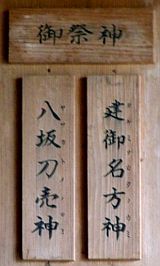 御祭神
建御名方神
八坂刀売神